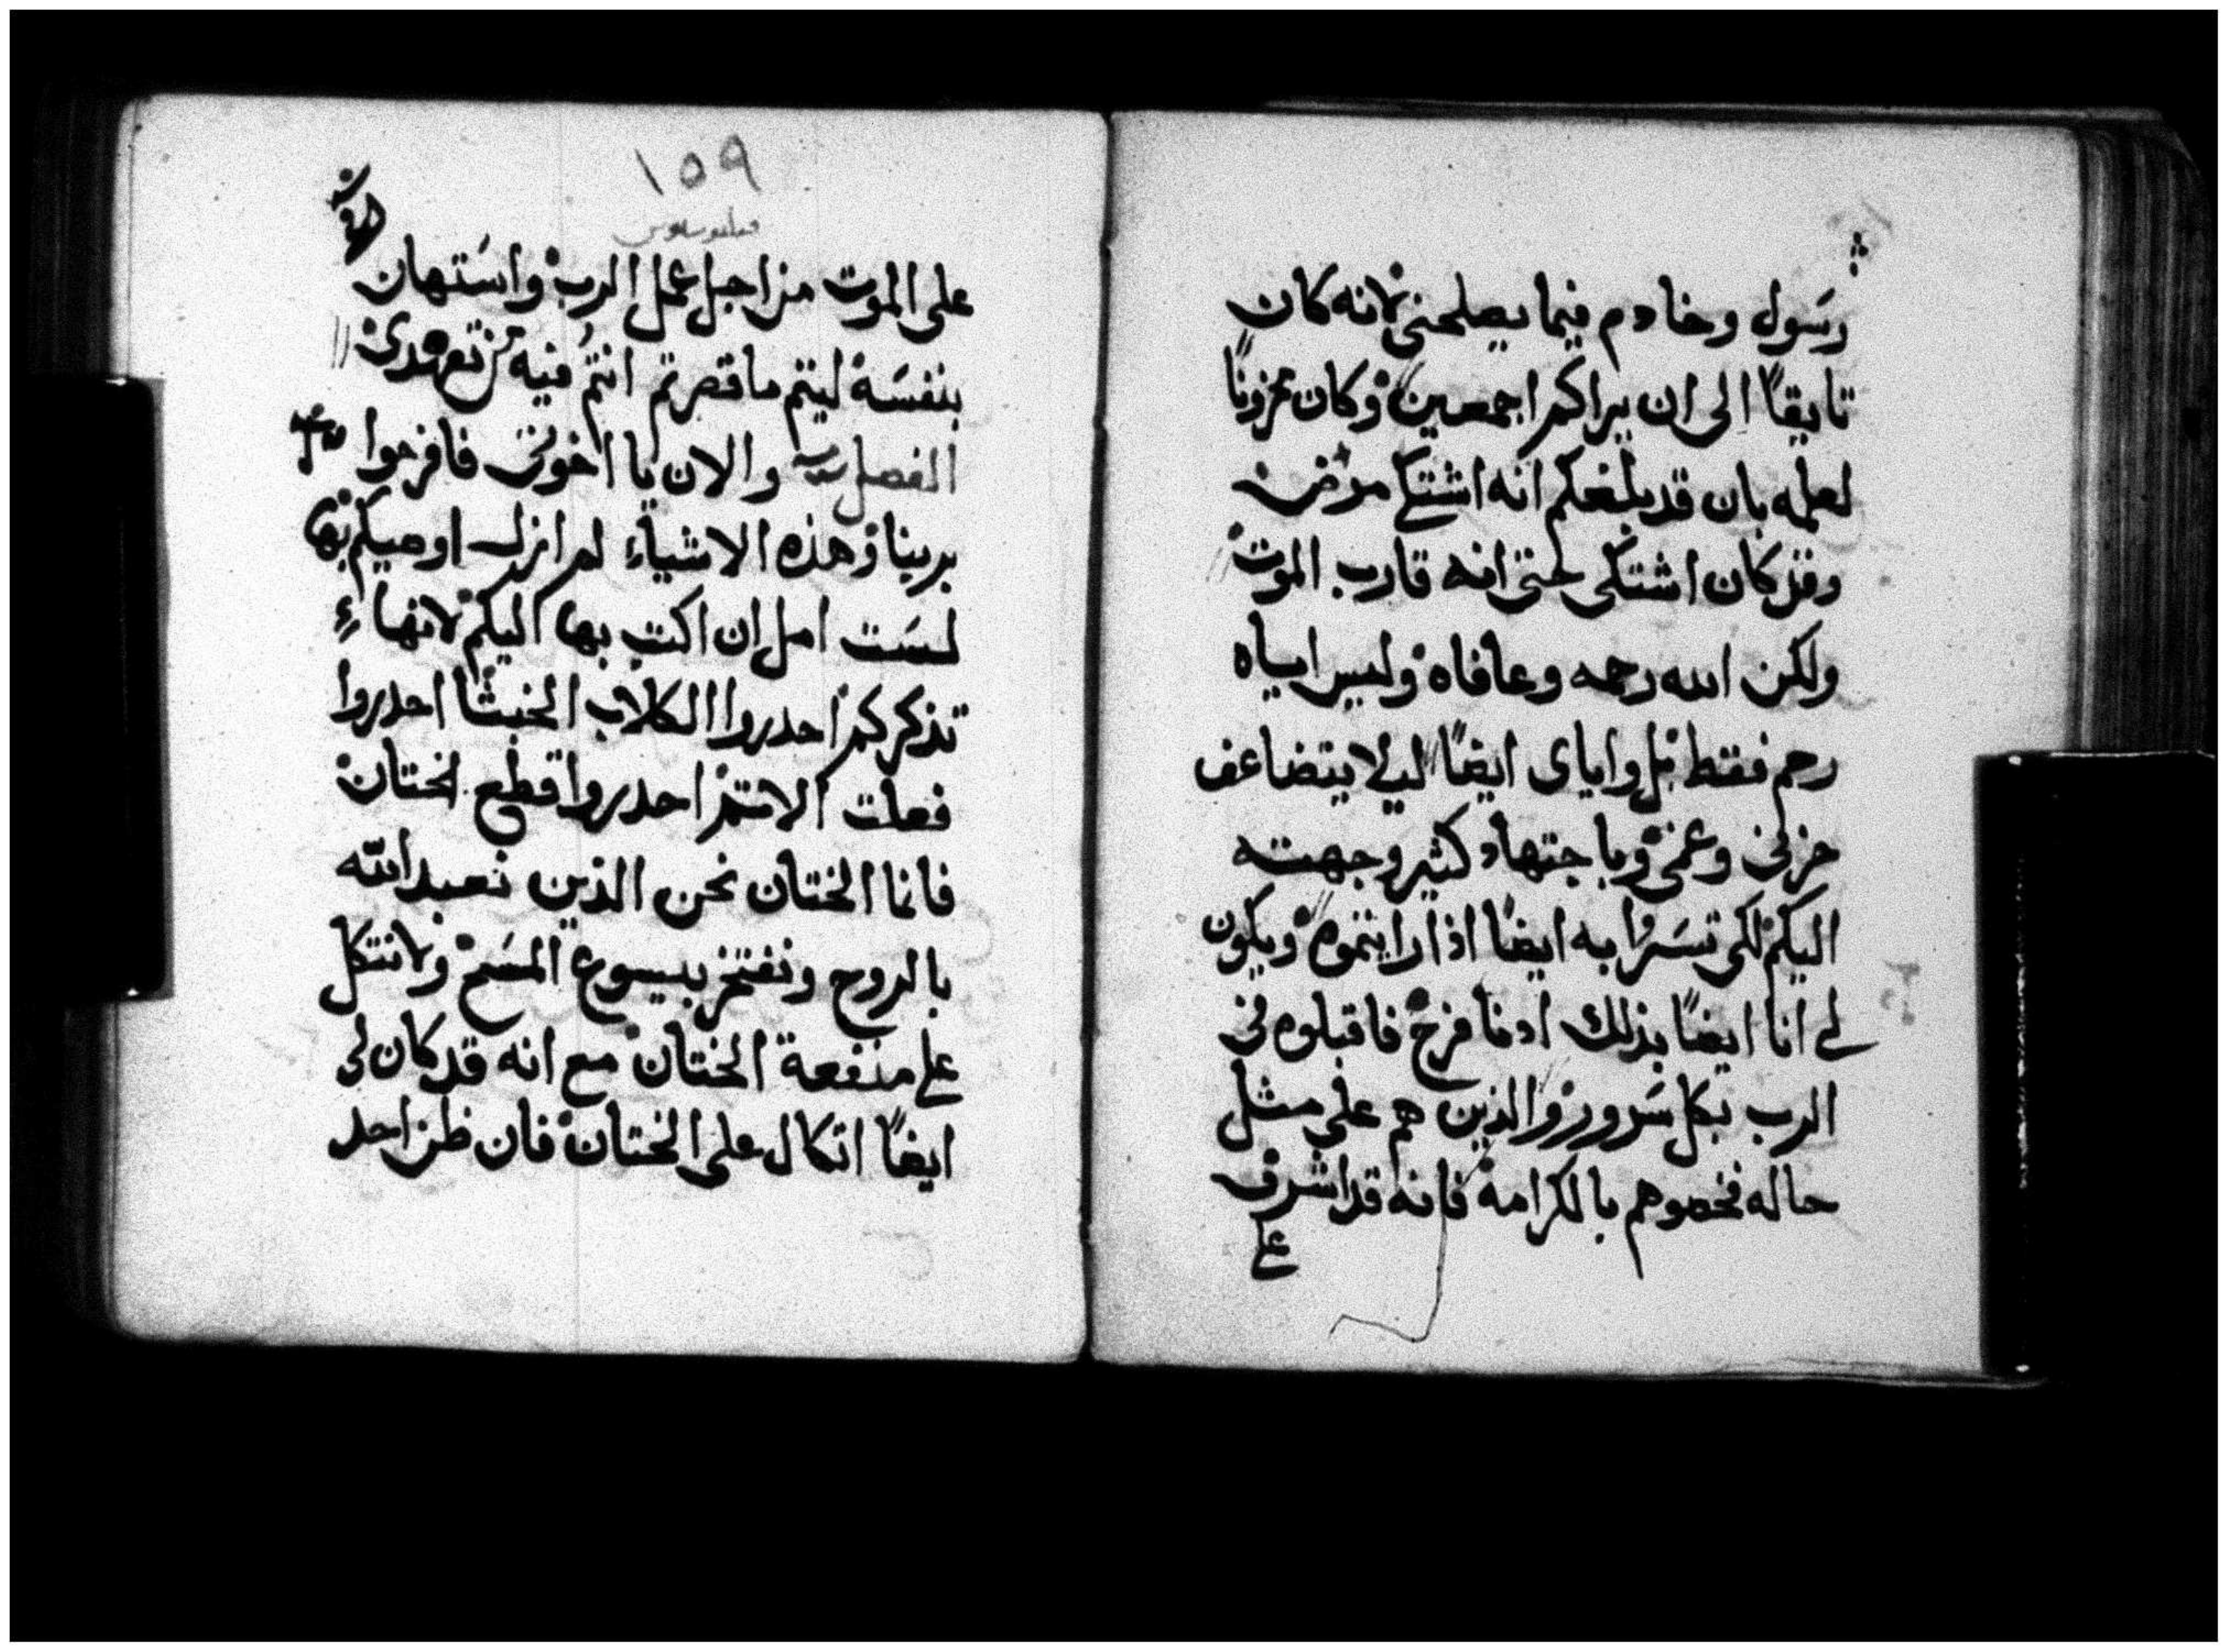 رسول وخادم فيما يصلحني لانه كان
تايقاً الى ان يراكم اجمعين وكان محزوناً
لعلمه بان قد بلغكم انه اشتكا مرض
وقد كان اشتكى حتى انه قارب الموت
ولكن الله رحمه وعافاه وليس اياه
رحم فقط بل واياى ايضاً ليلا يتضاعف
حزني وغمي وباجتهاد كثير وجهته
اليكم لكي تسروا به ايضاً اذا رايتموه ويكون
لي انا ايضاً بذلك ادنا فرح فاقبلوه في
الرب بكل سرور والذين هم على مثل
حاله فخصوهم بالكرامة فانه قد اشرف
على
١٥٩
فيليبوسيوس
على الموت من اجل عمل الرب واستهان
بنفسه ليتم ما قصرتم انتم فيه من تعهدي
الفصل والان يا اخوتي فافرحوا
بربنا وهذه الاشياء لم ازل اوصيكم بها
لست امل ان اكتب بها اليكم لانها
تذكركم احدروا الكلاب الخبثا احدروا
فعلت الاثم احدروا قطع الختان
فانما الختان نحن الذين نعبد الله
بالروح ونفتخر بيسوع المسيح ولا نتكل
على منفعة الختان مع انه قد كان لي
ايضاً اتكال على الختان فان ظن احد